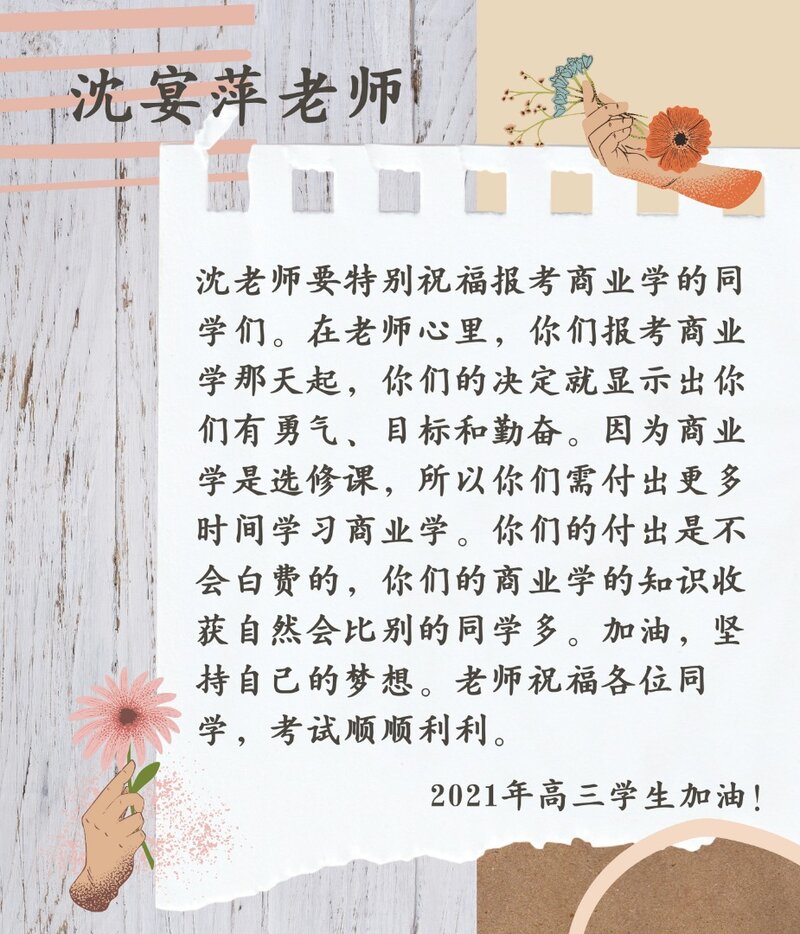 沈宴萍老师
沈老师要特别祝福报考商业学的同
学们。在老师心里，你们报考商业
学那天起，你们的决定就显示出你
们有勇气、目标和勤奋。因为商业
学是选修课，所以你们需付出更多
时间学习商业学。你们的付出是不
会白费的，你们的商业学的知识收
获自然会比别的同学多。加油，坚
持自己的梦想。老师祝福各位同
学，考试顺顺利利。
2021年高三学生加油！